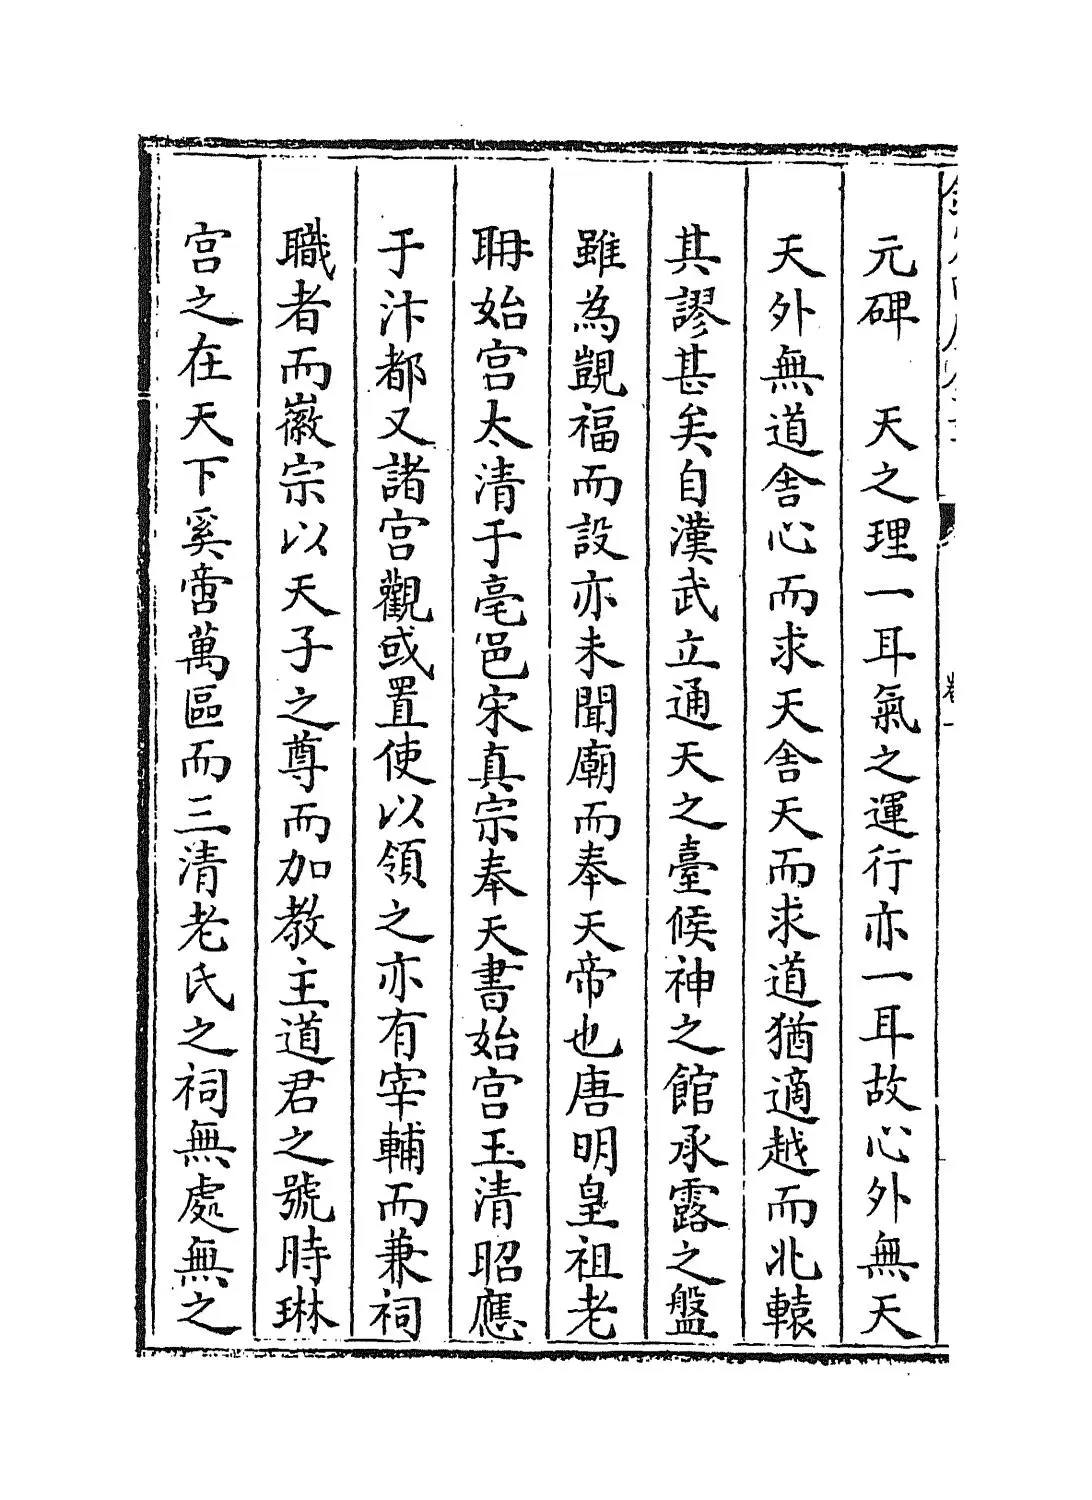 元碑　天之理一耳氣之運行亦一耳故心外無天
天外無道舍心而求天舍天而求道猶適越而北轅
其謬甚矣自漢武立通天之臺候神之館承露之盤
雖為覬福而設亦未聞廟而奉天帝也唐明皇祖老
耼始宫太清于亳邑宋真宗奉天書始宫玉清昭應
于汴都又諸宫觀或置使以領之亦有宰輔而兼祠
職者而徽宗以天子之尊而加教主道君之號時琳
宫之在天下奚啻萬區而三清老氏之祠無處無之